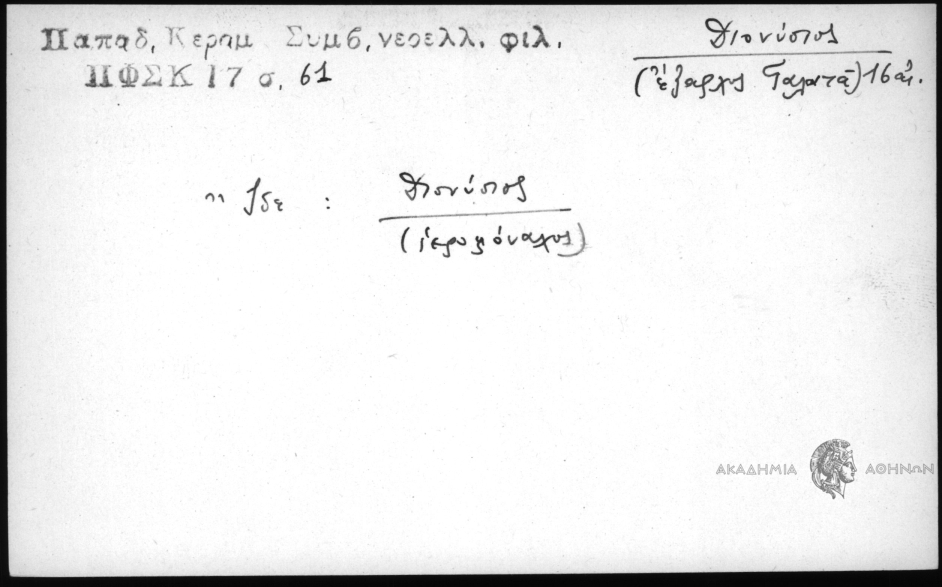 Παπαδ, Κεραμ Συμβ, νεοελλ. φιλ.
ΠΦΣΚ 17 σ. 61
Διονύσιος
(ἔξαρχος Γαλατᾶ) 16 αἰ.
" Ἴδε : Διονύσιος
(ἱερομόναχος)
ΑΚΑΔΗΜΙΑ ΑΘΗΝΩΝ